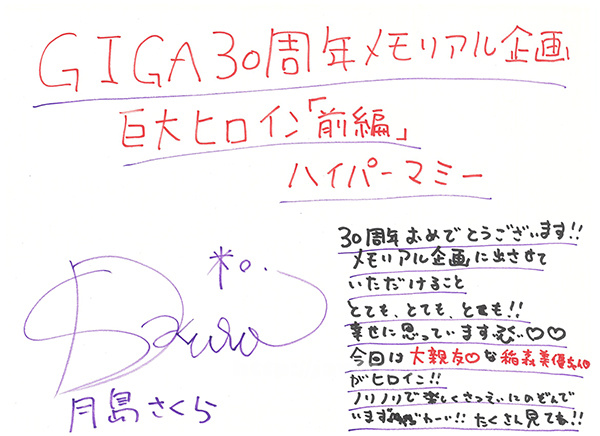 GIGA30周年メモリアル企画
巨大ヒロイン「前編」
ハイパーマミー
Sakura
月島さくら
30周年おめでとうございます!!
メモリアル企画に出させて
いただけること
とても、とても、とても!!
幸せに思っています♡♡
今回は大親友♡な稲森美優ちゃん
がヒロイン!!
ノリノリで楽しくさつえいにのぞんで
います わーい!! たくさん見てね!!